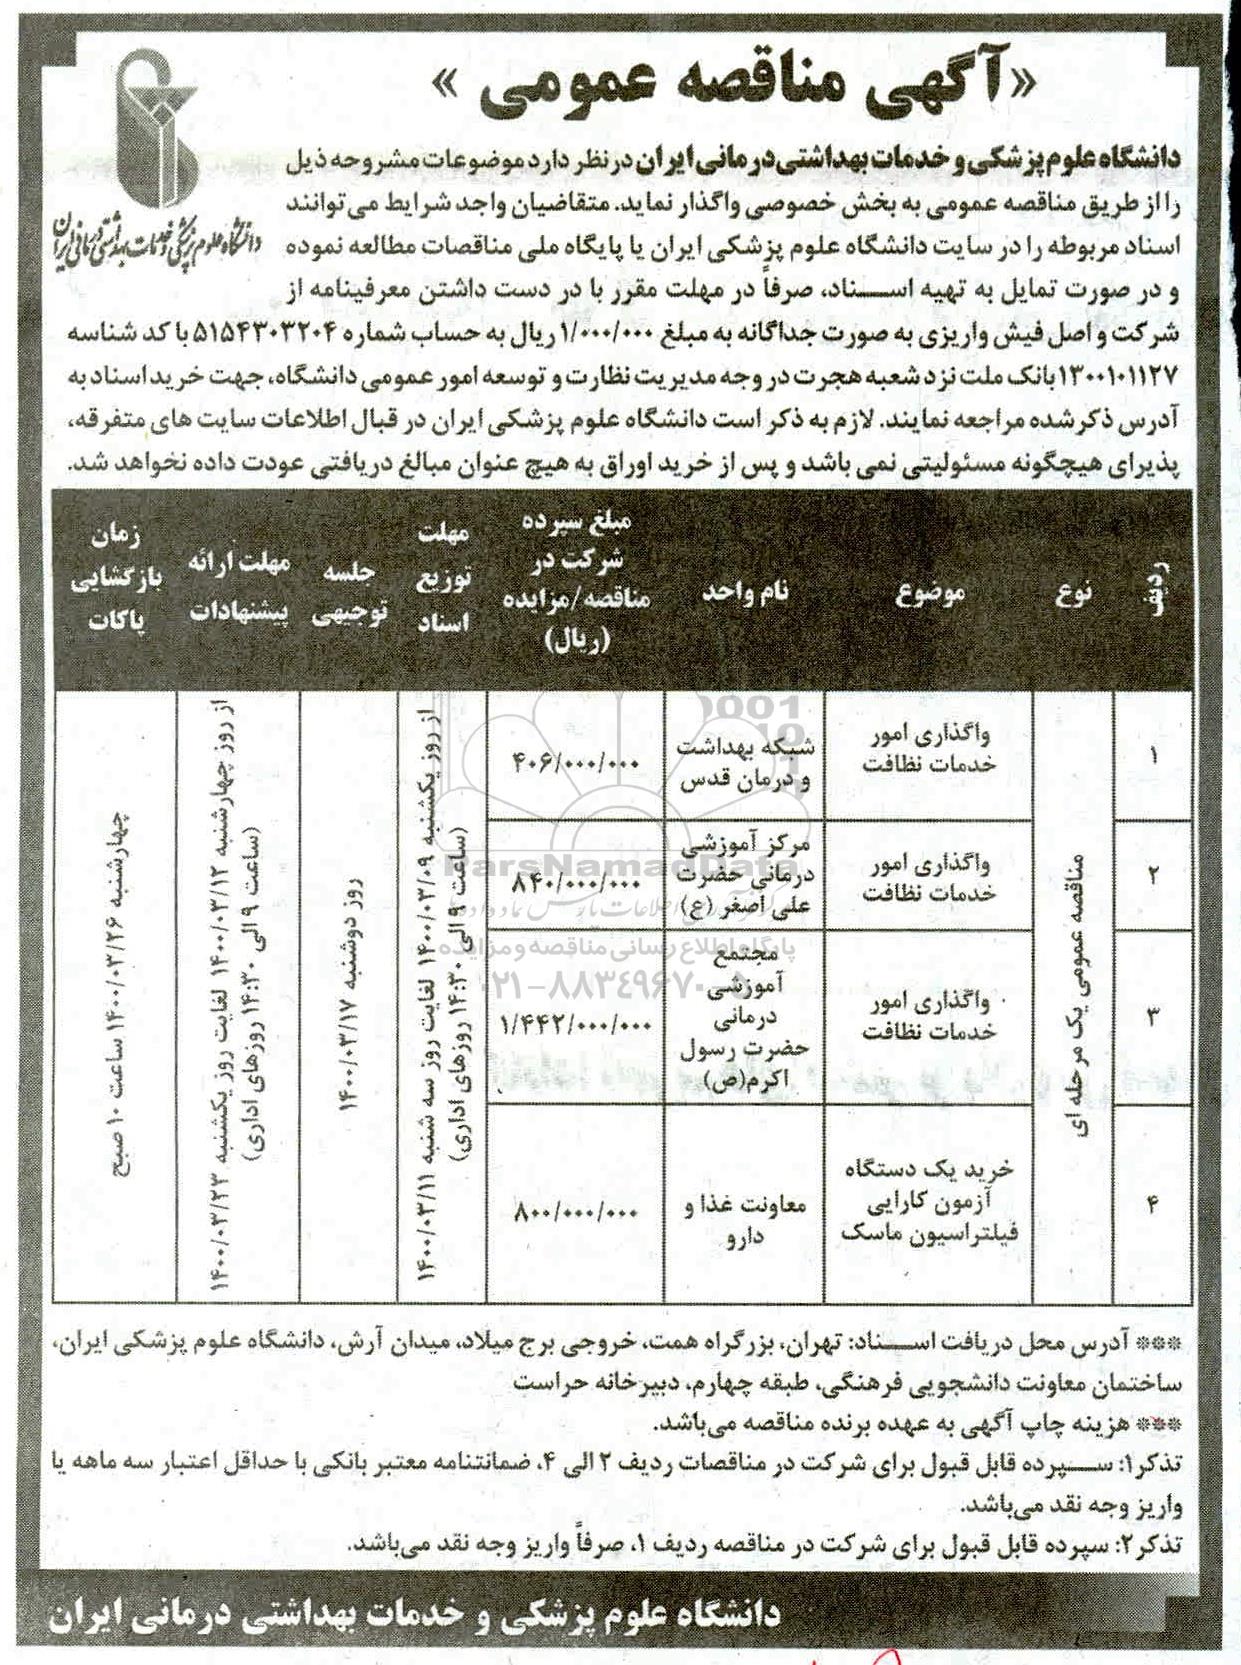 «آگهی مناقصه عمومی »
دانشگاه علوم پزشکی و خدمات بهداشتی درمانی ایران
دانشگاه علوم پزشکی و خدمات بهداشتی درمانی ایران در نظر دارد موضوعات مشروحه ذیل
را از طریق مناقصه عمومی به بخش خصوصی واگذار نماید. متقاضیان واجد شرایط می‌توانند
اسناد مربوطه را در سایت دانشگاه علوم پزشکی ایران یا پایگاه ملی مناقصات مطالعه نموده
و در صورت تمایل به تهیه اسناد، صرفاً در مهلت مقرر با در دست داشتن معرفینامه از
شرکت و اصل فیش واریزی به صورت جداگانه به مبلغ ۱/۰۰۰/۰۰۰ ریال به حساب شماره ۵۱۵۴۳۰۳۲۰۴ با کد شناسه
۱۳۰۰۱۰۱۱۲۷ بانک ملت نزد شعبه هجرت در وجه مدیریت نظارت و توسعه امور عمومی دانشگاه، جهت خرید اسناد به
آدرس ذکر شده مراجعه نمایند. لازم به ذکر است دانشگاه علوم پزشکی ایران در قبال اطلاعات سایت های متفرقه،
پذیرای هیچگونه مسئولیتی نمی باشد و پس از خرید اوراق به هیچ عنوان مبالغ دریافتی عودت داده نخواهد شد.
ردیف
نوع
موضوع
نام واحد
مبلغ سپرده
شرکت در
مناقصه/مزایده
(ریال)
مهلت
توزیع
اسناد
جلسه
توجیهی
مهلت ارائه
پیشنهادات
زمان
بازگشایی
پاکات
۱
مناقصه عمومی یک مرحله ای
واگذاری امور
خدمات نظافت
شبکه بهداشت
و درمان قدس
۴۰۶/۰۰۰/۰۰۰
از روز یکشنبه ۱۴۰۰/۰۳/۰۹ لغایت روز سه شنبه ۱۴۰۰/۰۳/۱۱
(ساعت ۹ الی ۱۴:۳۰ روزهای اداری)
روز دوشنبه ۱۴۰۰/۰۳/۱۷
از روز چهارشنبه ۱۴۰۰/۰۳/۱۲ لغایت روز یکشنبه ۱۴۰۰/۰۳/۲۳
(ساعت ۹ الی ۱۴:۳۰ روزهای اداری)
چهارشنبه ۱۴۰۰/۰۳/۲۶ ساعت ۱۰ صبح
۲
واگذاری امور
خدمات نظافت
مرکز آموزشی
درمانی حضرت
علی اصغر (ع)
۸۴۰/۰۰۰/۰۰۰
۳
واگذاری امور
خدمات نظافت
مجتمع
آموزشی
درمانی
حضرت رسول
اکرم(ص)
۱/۴۴۲/۰۰۰/۰۰۰
۴
خرید یک دستگاه
آزمون کارایی
فیلتراسیون ماسک
معاونت غذا و
دارو
۸۰۰/۰۰۰/۰۰۰
ParsNamadData
پایگاه اطلاع رسانی مناقصه و مزایده
۰۲۱-۸۸۳۴۹۶۷۰-۵
*** آدرس محل دریافت اسناد: تهران، بزرگراه همت، خروجی برج میلاد، میدان آرش، دانشگاه علوم پزشکی ایران،
ساختمان معاونت دانشجویی فرهنگی، طبقه چهارم، دبیرخانه حراست
*** هزینه چاپ آگهی به عهده برنده مناقصه می‌باشد.
تذکر۱: سپرده قابل قبول برای شرکت در مناقصات ردیف ۲ الی ۴، ضمانتنامه معتبر بانکی با حداقل اعتبار سه ماهه یا
واریز وجه نقد می‌باشد.
تذکر۲: سپرده قابل قبول برای شرکت در مناقصه ردیف ۱، صرفاً واریز وجه نقد می‌باشد.
دانشگاه علوم پزشکی و خدمات بهداشتی درمانی ایران